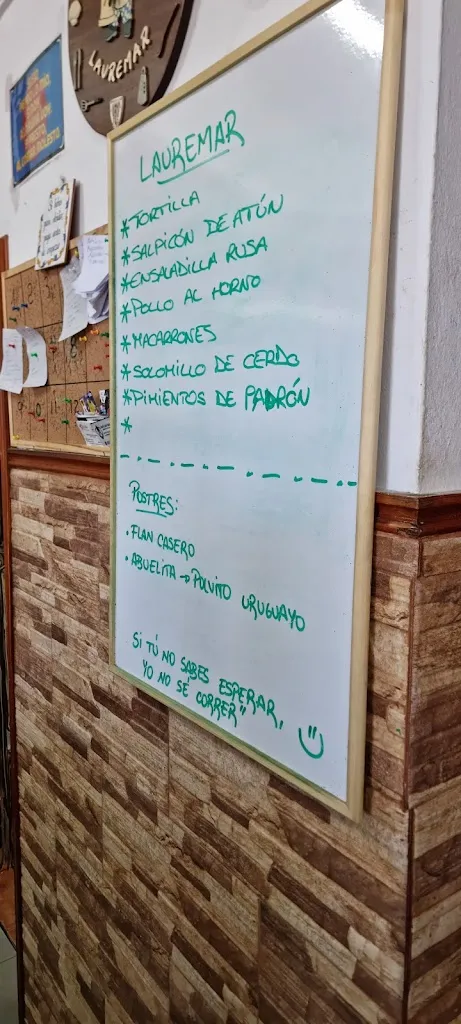 LAUREMAR
LAUREMAR
* TORTILLA
* SALPICÓN DE ATÚN
* ENSALADILLA RUSA
* POLLO AL HORNO
* MACARRONES
* SOLOMILLO DE CERDO
* PIMIENTOS DE PADRÓN
*
POSTRES:
• FLAN CASERO
• ABUELITA → POLVITO URUGUAYO
SI TÚ NO SABES ESPERAR,
YO NO SÉ CORRER"